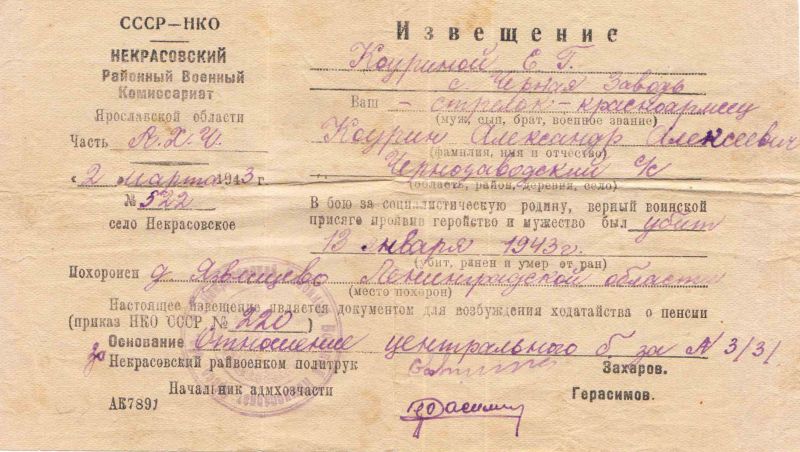 СССР—НКО
НЕКРАСОВСКИЙ
Районный Военный
Комиссариат
Ярославской области
Часть А.Х.Ч.
„2 „ марта 1943 г.
№ 522
село Некрасовское
Извещение
Коуриной Е. Г.
с. Черная Заводь
Ваш — стрелок — красноармеец
(муж, сын, брат, военное звание)
Коурин Александр Алексеевич
(фамилия, имя и отчество)
Чернозаводский с/с
(область, район, деревня, село)
В бою за социалистическую родину, верный воинской
присяге проявив геройство и мужество был убит
13 января 1943 г.
(убит, ранен и умер от ран)
Похоронен д Ленинградской области
(место похорон)
Настоящее извещение является документом для возбуждения ходатайства о пенсии
(приказ НКО СССР № 220 )
Основание Отношение центрального б. за № 3/3/
Некрасовский райвоенком политрук Захаров.
Начальник адмхозчасти Герасимов.
АК7891